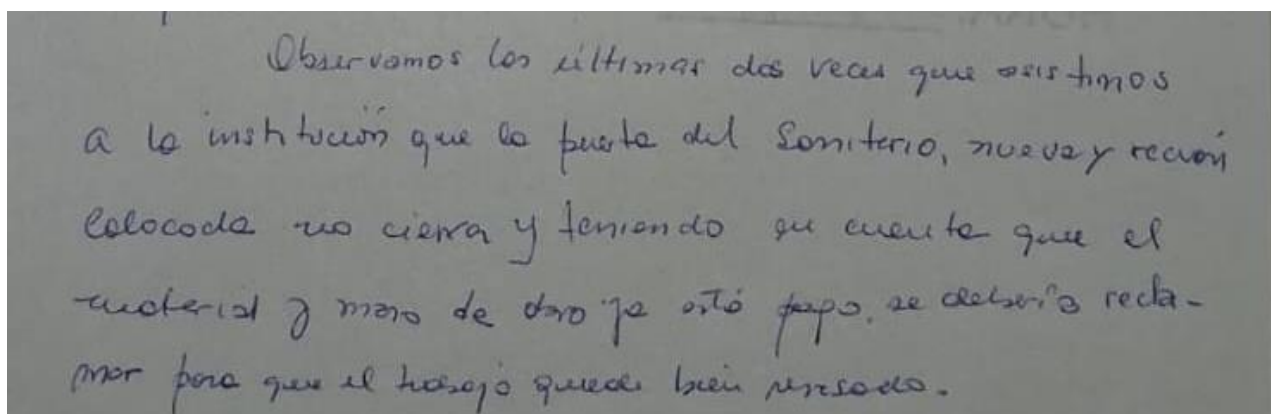 Observamos las últimas dos veces que asistimos
a la institución que la puerta del Sanitario, nueva y recién
colocada no cierra y teniendo en cuenta que el
material y mano de obra ya está pago, se debería recla-
mar para que el trabajo quede bien